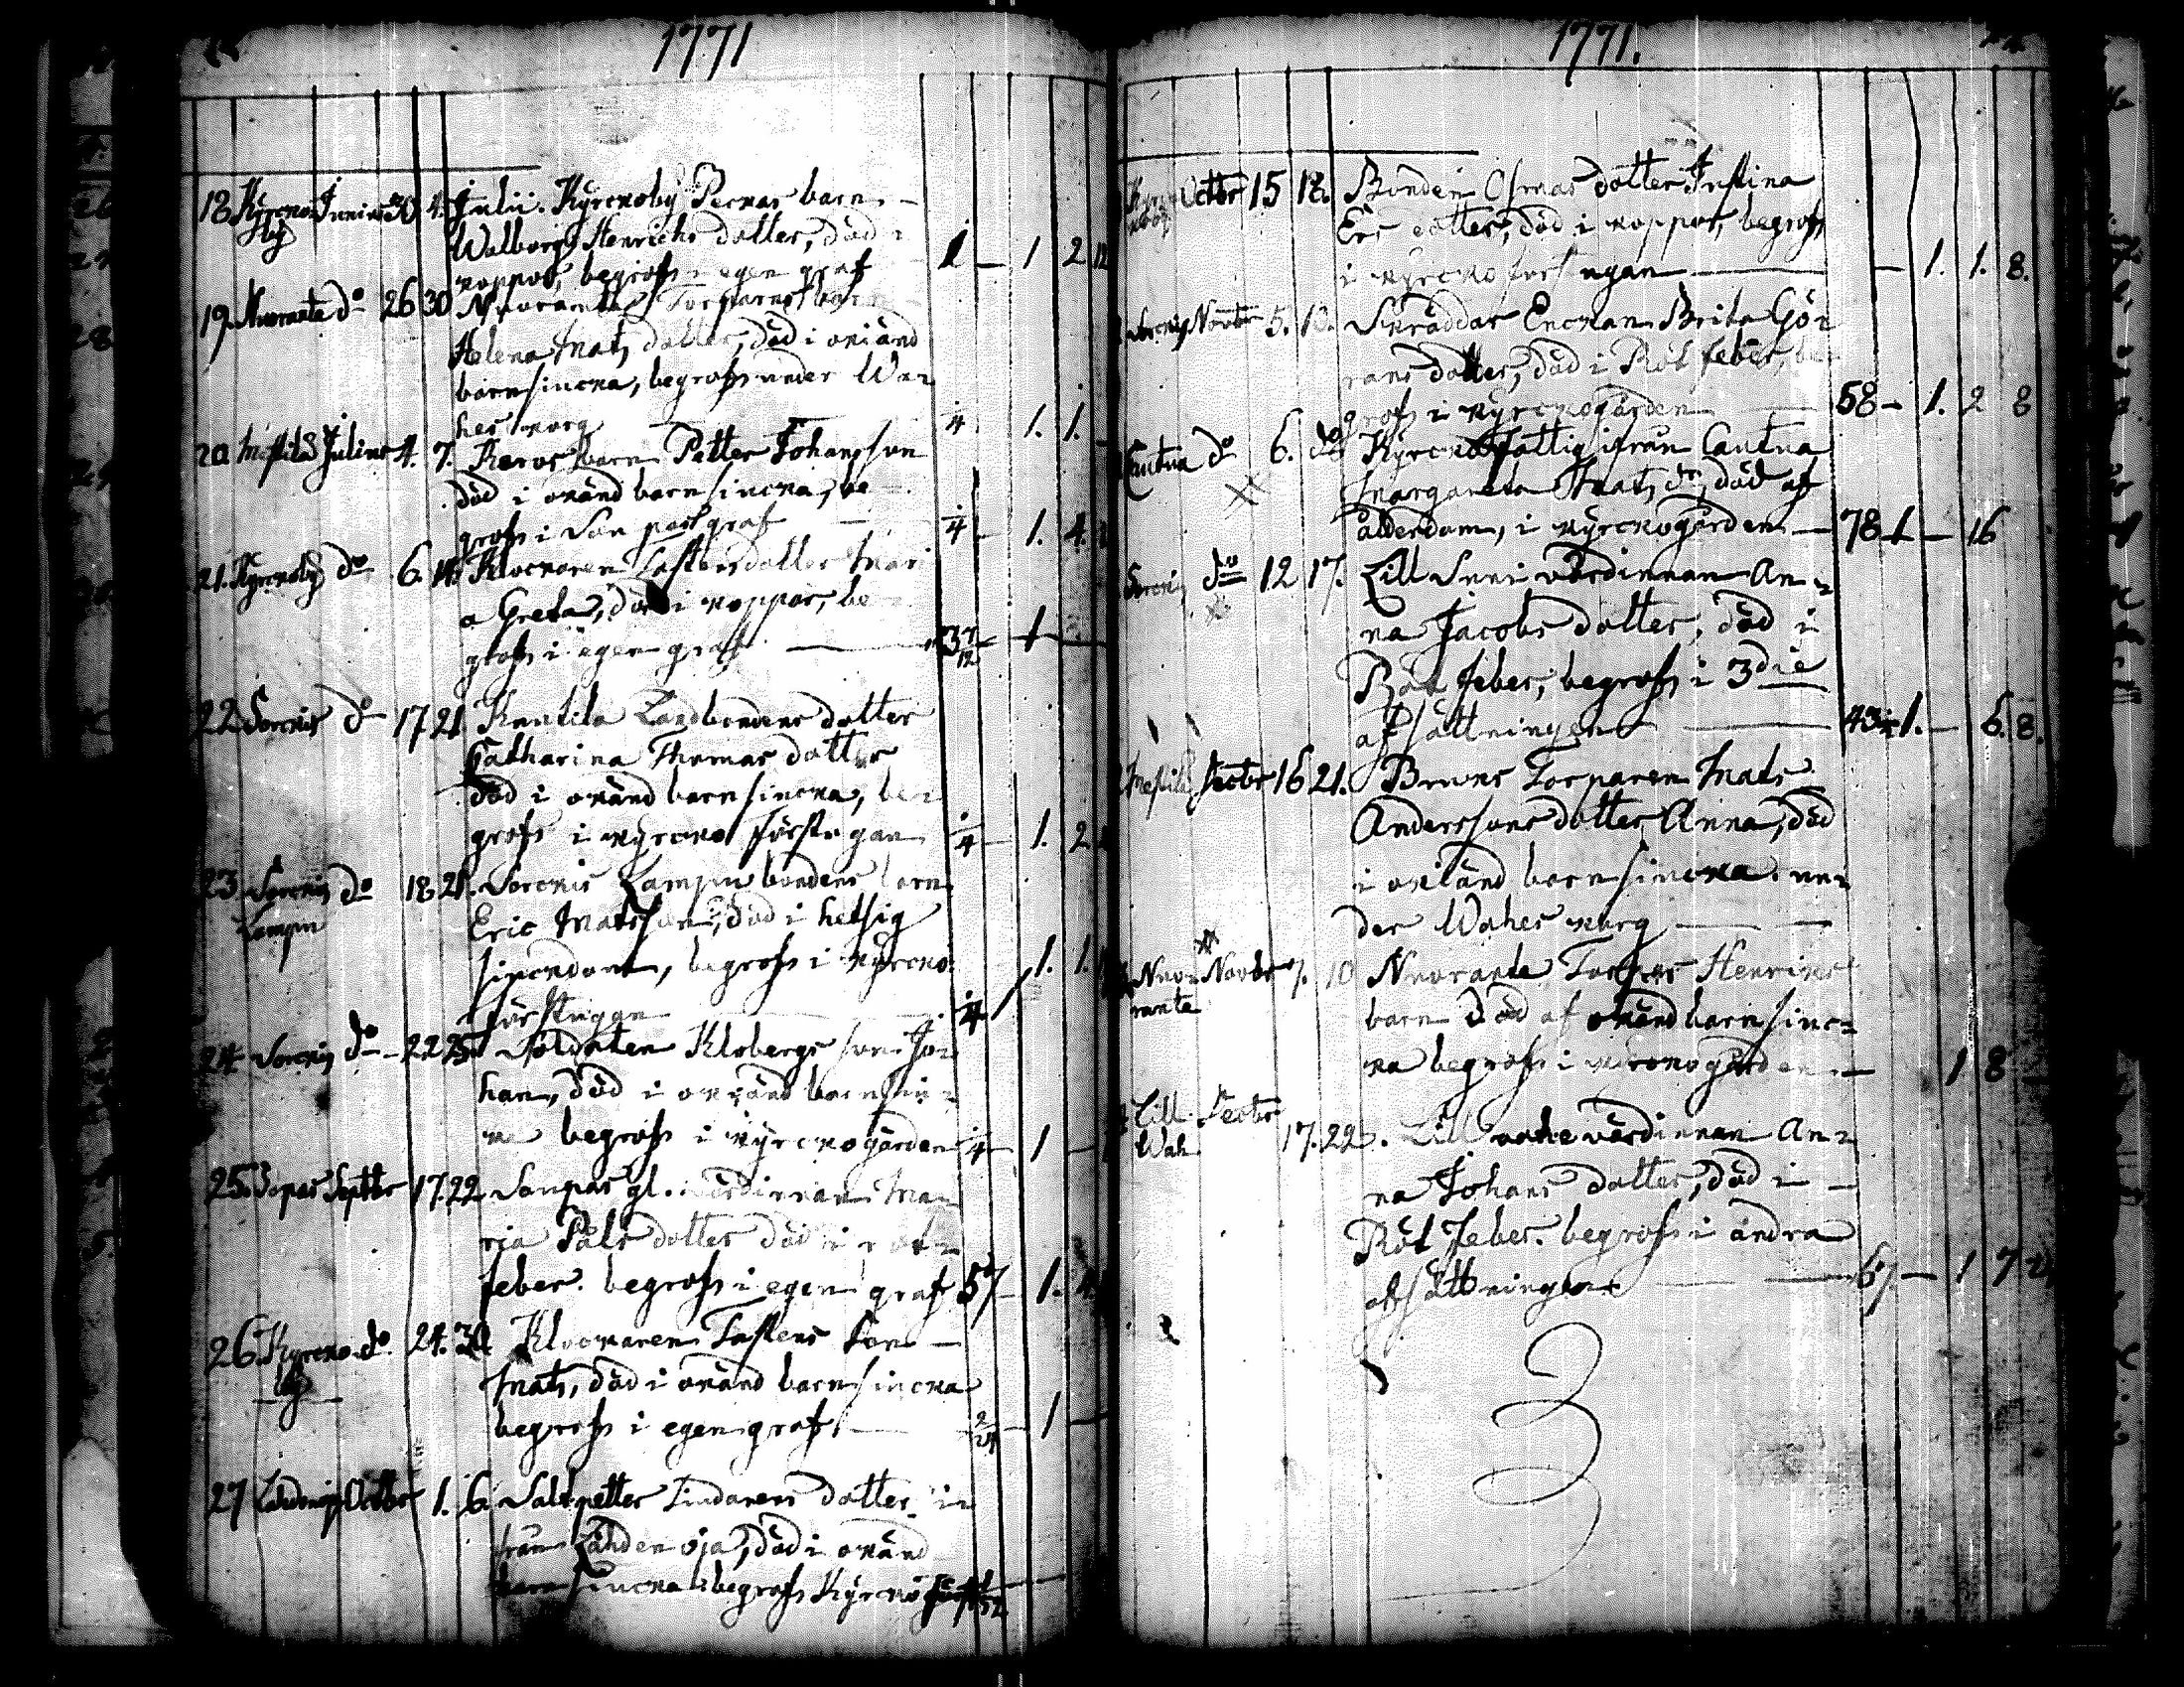 1771
18 Kyrcko Junius 30 4. Julii. Kyrckoby Peckas barn
by Walborg Henrichs dotter, död i
koppor, begrofs i egen graf 1 — 1 2
19. Nuoranta do 26 30 Nuoranta Torparens barn
Helena Mats dotter, död i okiänd
barnsiucka, begrofs under Wa-
hes korg 1/4 1. 1.
20 Messila Julius 4. 7. Keros barn Petter Johansson
död i okänd barnsiucka, be-
grofs i Son past graf 1/4 — 1. 4.
21. Kyrckoby do 6. 14. Klockaren Tastens dotter Mari
a Greta, död i koppor, be-
grofs i egen graf 3 7/12 — 1 —
22 Sorckis do 17 21 Knutila Landbondens dotter
Catharina Thomas dotter
död i okänd barnsiucka, be-
grofs i kyrcko förstugan 1/4 — 1. 2
23 Sorckis do 18 21. Sorckis Lampu bondens barn
Lampu Eric Matsson, död i hetsig
siuckdom, begrofs i kyrcko 1. 1.
förstugan 1/4
24 Sorckis do 22 25 Soldaten Klobergs son Jo-
han, död i okiänd barnsiu-
ka begrofs i kyrckogården 1/4 — 1 —
25. Sopas Septbr 17. 22 Sonpas gl. värdinnan Ma-
ria Påls dotter död i röt-
feber. begrofs i egen graf 57 — 1. 4
26 Kyrcko do 24. 30 Klockaren Tastens Son —
by Mats, död i okänd barnsiucka
begrofs i egen graf. 2/24 — 1 —
27 Lähdenoja Octobr 1. 6. Saltpetter Siudarens dotter i-
från Lähdenoja, död i okänd
barnsiucka begrofs Kyrcko först
1771.
Octbr 15 18. Bonden Osmas dotter Justina
Ers dotter, död i koppor, begrofs
i kyrcko förstugan — — 1. 1. 8.
Sorckis Novbr 5. 10. Skräddar Enckan Brita Gör-
rans dotter, död i Röt feber, be-
grofs i kyrckogården 58 — 1. 2 8
Cautua do 6. do Kyrcko Fattig ifrån Cautua
Margareta Mats dr, död af
ålderdom, i kyrckogården — 78 1 — 16
Sorckis do 12 17. Lill Sini värdinnan An-
na Jacobs dotter, död i
Röt feber, begrofs i 3die
afsättningen 43 1. — 6. 8.
Messila Decbr 16 21. Bruns Torparen Mats
Anderssons dotter Anna, död
i okiänd barnsiucka. un-
der Wahes korg —
Nuo- Novbr 7. 10 Nuoranta Torpar Henrics
ranta barn död af okänd barnsiuc-
ka begrofs i kyrckogården — 1 8
Lill Decbr
Wah 17. 22. Lill vahe värdinnan An-
na Johans dotter, död i —
Röt Feber. begrofs i andra
afsättningen — 67 — 1 7